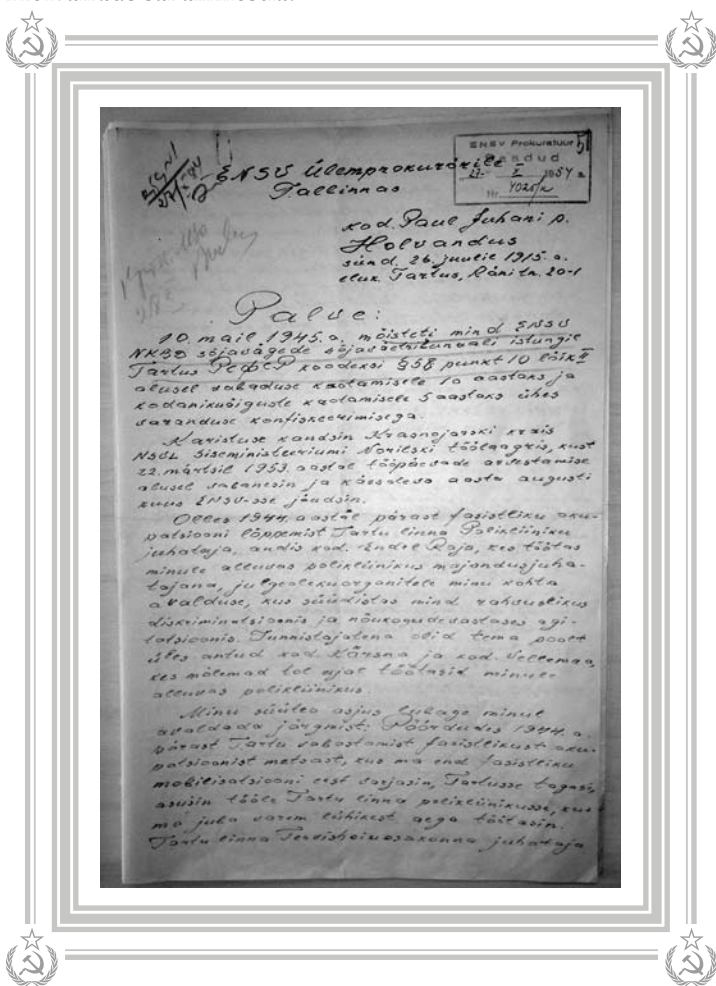 ENSV Prokuratuur
Saadud
27. X 1954 a.
Nr. 4025/n
51
ENSV Ülemprokurörile
Tallinnas
kod. Paul Juhani p.
Holvandus
sünd. 26. juulil 1915. a.
eluk. Tartus, Räni tn. 20-1
Palve:
10. mail 1945. a. mõisteti mind ENSV
NKVD sõjavägede sõjatribunaali istungil
Tartus РСФСР koodeksi §58 punkt 10 lõik II
alusel vabaduse kaotamisele 10 aastaks ja
kodanikuõiguste kaotamisele 5 aastaks ühes
varanduse konfiskeerimisega.
Karistuse kandsin Krasnojarski krais
NSVL Siseministeeriumi Norilski töölaagris, kust
22. märtsil 1953. aastal tööpäevade arvestamise
alusel vabanesin ja käesoleva aasta augusti
kuus ENSV-sse jõudsin.
Olles 1944. aastal pärast fašistliku oku-
patsiooni lõppemist Tartu linna Polikliiniku
juhataja, andis kod. Endel Raja, kes töötas
minule alluvas polikliinikus majandusjuha-
tajana, julgeolekuorganitele minu kohta
avalduse, kus süüdistas mind rahvuslikus
diskriminatsioonis ja nõukogudevastases agi-
tatsioonis. Tunnistajatena olid tema poolt
üles antud kod. Kärsna ja kod. Vellemaa,
kes mõlemad tol ajal töötasid minule
alluvas polikliinikus.
Minu süütea asjus lubage minul
avaldada järgmist: Pöördudes 1944. a.
pärast Tartu vabastamist fašistlikust oku-
patsioonist metsast, kus ma end fašistliku
mobilisatsiooni eest varjasin, Tartusse tagasi,
asusin tööle Tartu linna polikliinikusse, kus
ma juba varem lühikest aega töötasin.
Tartu linna Tervishoiuosakonna juhataja